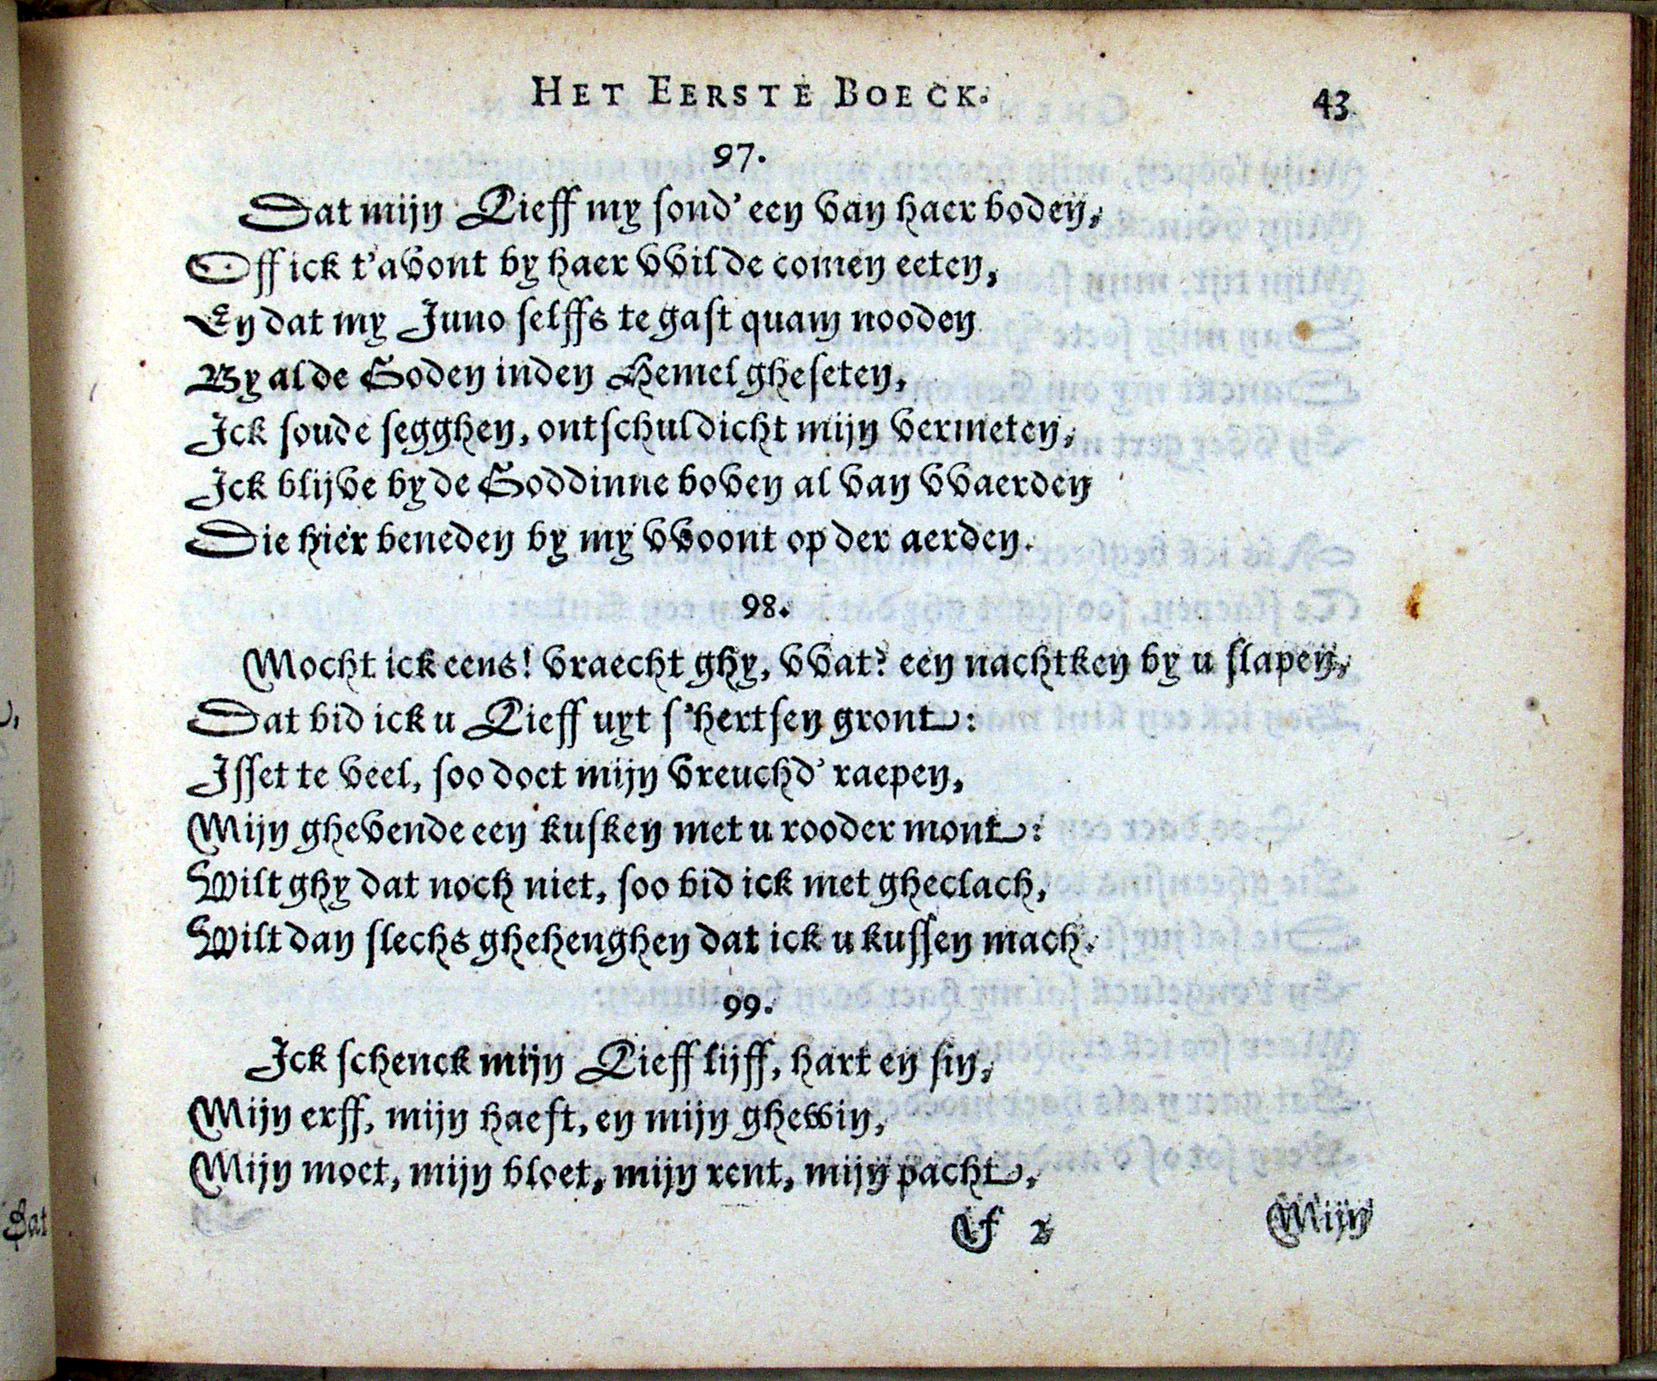 HET EERSTE BOECK. 43
97.
Dat mijn Lieff my sond' een van haer boden,
Off ick t'avont by haer vvilde comen eeten,
En dat my Juno selffs te gast quam nooden
By al de Goden inden Hemel gheseten,
Ick soude segghen, ontschuldicht mijn vermeten,
Ick blijve by de Goddinne boven al van vvaerden
Die hier beneden by my vvoont op der aerden.
98.
Mocht ick eens! vraecht ghy, vvat? een nachtken by u slapen,
Dat bid ick u Lieff uyt s'hertsen gront:
Isset te veel, soo doet mijn vreuchd' raepen,
Mijn ghevende een kusken met u rooder mont:
Wilt ghy dat noch niet, soo bid ick met gheclach,
Wilt dan slechs ghehenghen dat ick u kussen mach.
99.
Ick schenck mijn Lieff lijff, hart en sin,
Mijn erff, mijn haeft, en mijn ghewin,
Mijn moet, mijn bloet, mijn rent, mijn pacht,
f 2 Mijn
Dat